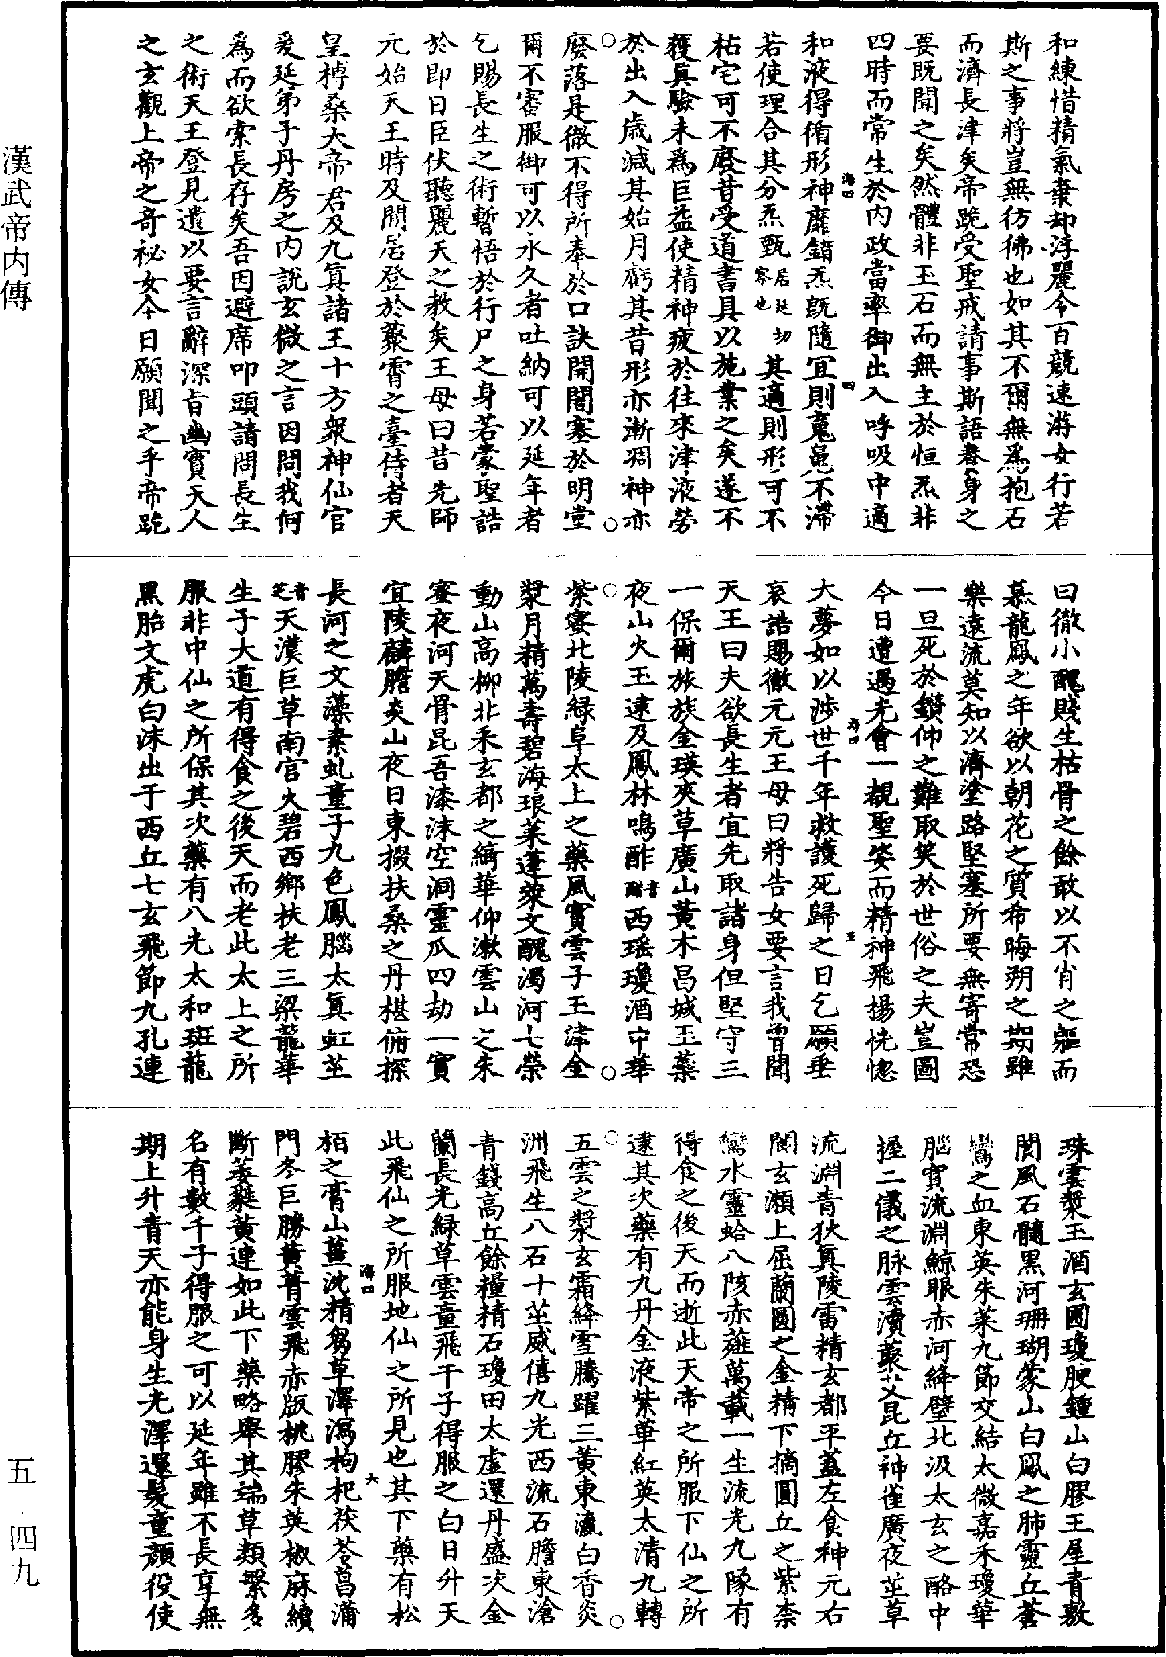 漢武帝内傳
和練惜精氣棄却浮麗令百競速游女行若
斯之事將豈無彷彿也如其不爾無為抱石
而濟長津矣帝跪受聖戒請事斯語養身之
要既聞之矣然體非玉石而無主於恒炁非
四時而常生於內政當率御出入呼吸中適
和液得脩形神靡錯炁既隨宜則䰟魄不滯
若使理合其分炁甄居延切察也其適則形可不
枯宅可不廢昔受道書具以施業之矣遂不
獲真驗未為巨益使精神疲於往來津液勞
於出入歲減其始月虧其昔形亦漸凋神亦
廢落是徹不得所奉於口訣開闇塞於明堂
爾不審服御可以永久者吐納可以延年者
乞賜長生之術暫悟於行尸之身若蒙聖誥
於即日臣伏聽麗天之教矣王母曰昔先師
元始天王時及閒居登於藂霄之臺侍者天
皇搏桑大帝君及九真諸王十方衆神仙官
爰延弟子丹房之內說玄微之言因問我何
為而欲索長存矣吾因避席叩頭請問長生
之術天王登見遺以要言辭深旨幽實天人
之玄觀上帝之奇秘女今日願聞之乎帝跪
曰徹小醜賤生枯骨之餘敢以不肖之軀而
慕龍鳳之年欲以朝花之質希晦朔之期雖
樂遠流莫知以濟塗路堅塞所要無寄常恐
一旦死於鑽仰之難取笑於世俗之夫豈圖
今日遭遇光會一覩聖姿而精神飛揚恍惚
大夢如以涉世千年救護死歸之日乞願垂
哀誥賜徹元元王母曰將告女要言我曾聞
天王曰夫欲長生者宜先取諸身但堅守三
一保爾旅族金瑛夾草廣山黃木昌城玉蘂
夜山火玉逮及鳳林鳴酢西瑤瓊酒中華
紫蜜北陵綠阜太上之藥風實雲子玉津金
漿月精萬壽碧海琅菜蓬萊文醜濁河七榮
動山高柳北釆玄都之綺華仰漱雲山之朱
蜜夜河天骨昆吾漆沫空洞靈瓜四劫一實
宜陵麟膽炎山夜日東掇扶桑之丹椹俯探
長河之文藻素虬童子九色鳳腦太真虹芝
天漢巨草南宮火碧西鄉扶老三梁龍華
生子大道有得食之後天而老此太上之所
服非中仙之所保其次藥有八光太和斑龍
黑胎文虎白沫出于西丘七玄飛節九孔連
珠雲漿玉酒玄圃瓊腴鍾山白膠王屋青敷
閬風石髓黑河珊瑚蒙山白鳳之肺靈丘蒼
鸞之血東英朱菜九節交結太微嘉禾瓊華
腦實流淵鯨眼赤河絳璧北汲太玄之酪中
握二儀之脉雲漬藂艾昆丘神雀廣夜芝草
流淵青狄真陵雷精玄都平蓋左食神元右
閬玄瀨上屈蘭圃之金精下摘圓丘之紫柰
鸞水靈蛤八陔赤薤萬載一生流光九隊有
得食之後天而逝此天帝之所服下仙之所
逮其次藥有九丹金液紫華紅英太清九轉
五雲之漿玄霜絳雪騰躍三黃東瀛白香炎
洲飛生八石十芝威僖九光西流石膽東滄
青錢高丘餘糧精石瓊田太虛還丹盛次金
蘭長光綠草雲童飛千子得服之白日升天
此飛仙之所服地仙之所見也其下藥有松
栢之膏山薑沈精芻草澤瀉枸杞茯苓菖蒲
門冬巨勝黃菁雲飛赤版桃膠朱英椒麻續
斷萎蕤黃連如此下藥略舉其端草類繁多
名有數千子得服之可以延年雖不長享無
期上升青天亦能身生光澤還髮童顏役使
五 四九